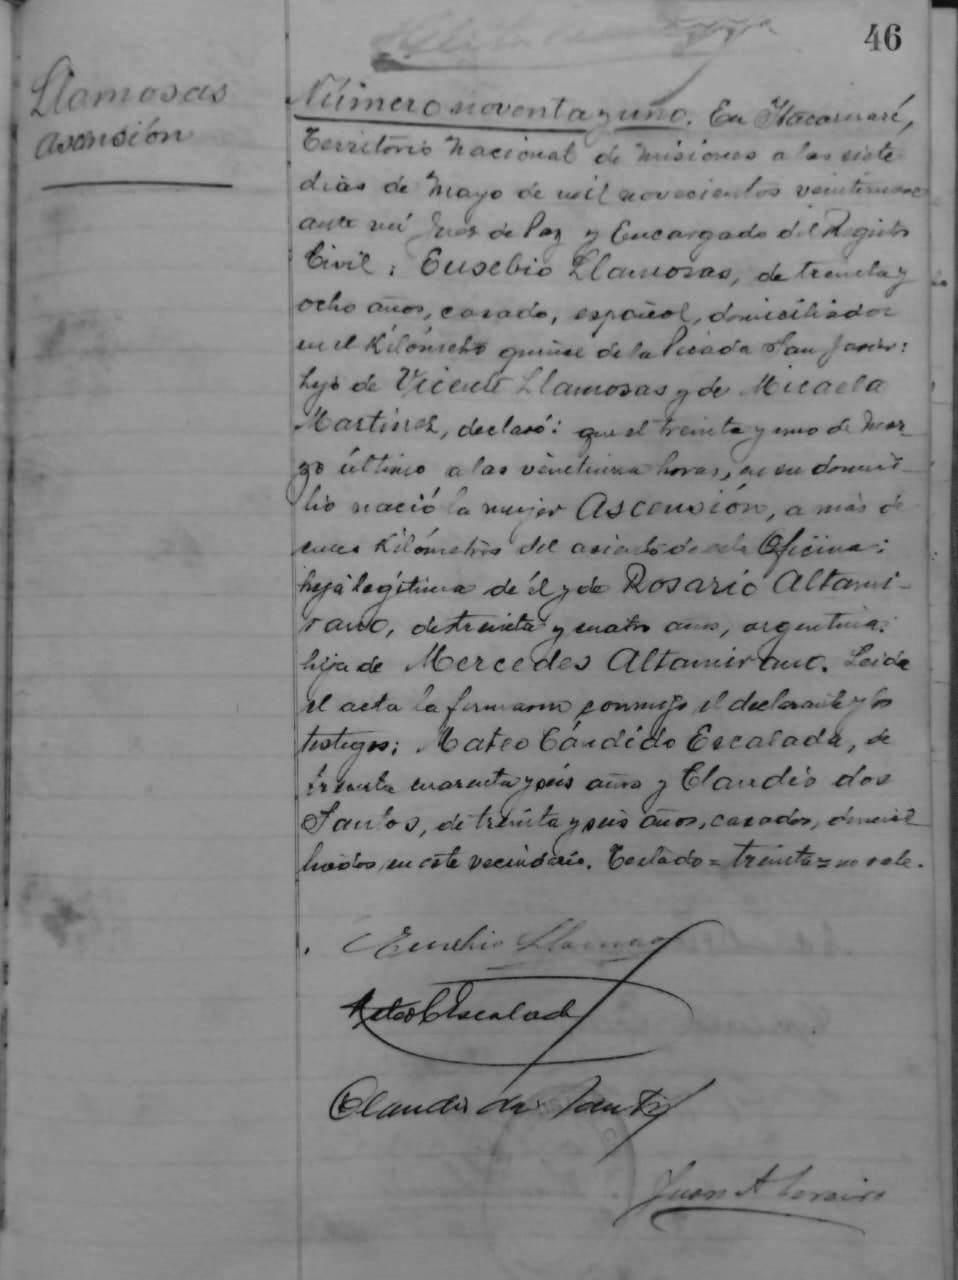 46
Llamosas
Ascensión
Número noventa y uno. En Itacaruaré,
Territorio Nacional de Misiones a los siete
días de Mayo de mil novecientos
ante mí Juez de Paz y Encargado del Registro
Civil; Eusebio Llamosas, de treinta y
ocho años, casado, español, domiciliado
en el Kilómetro quince de la Picada San Javier:
hijo de Vicente Llamosas y de Micaela
Martínez, declaró: que el treinta y uno de Mar-
zo último a las veintiuna horas, en su domici-
lio nació la mujer Ascensión, a más de
Kilómetros del asiento de esta Oficina:
hija legítima de él y de Rosario Altami-
rano, de treinta y cuatro años, argentina:
hija de Mercedes Altamirano. Leída
el acta la firmaron conmigo el declarante y los
testigos: Mateo Cándido Escalada, de
treinta cuarenta y seis años y Claudio dos
Santos, de treinta y seis años, casados, domici-
liados en este vecindario. Testado = treinta = no vale.
Eusebio Llamosas
Mateo C Escalada
Claudio dos Santos
Juan A